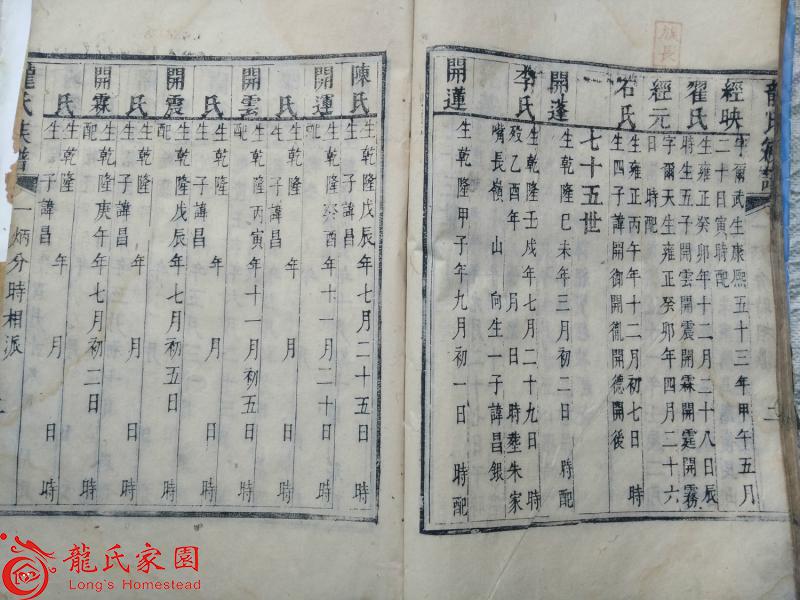 龍氏族譜
經映字爾武生康熙五十三年甲午五月
二十日寅時配
翟氏生雍正癸卯年十二月二十八日辰
時生五子開雲開震開霖開霆開霧
經元字爾天生雍正癸卯年四月二十六
日 時配
石氏生雍正丙午年十二月初七日 時
生四子諱開御開胤開德開後
七十五世
開蓬生乾隆己未年三月初二日 時配
李氏生乾隆壬戌年七月二十九日 時
歿乙酉年 月 日 時塟朱家
嘴長嶺 山 向生一子諱昌銀
開蓮生乾隆甲子年九月初一日 時配
陳氏生乾隆戊辰年七月二十五日 時
生 子諱昌
開運生乾隆癸酉年十一月二十日 時
配
氏生 年 月 日 時
生 子諱昌
開雲生乾隆丙寅年十一月初五日 時
配
氏生 年 月 日 時
生 子諱昌
開震生乾隆戊辰年七月初五日 時
配
氏生 年 月 日 時
生 子諱昌
開霖生乾隆庚午年七月初二日 時
配
氏生 年 月 日 時
生 子諱昌
龍氏族譜 一炳分時相派 二
族長
龍氏家園
Long's Homestead